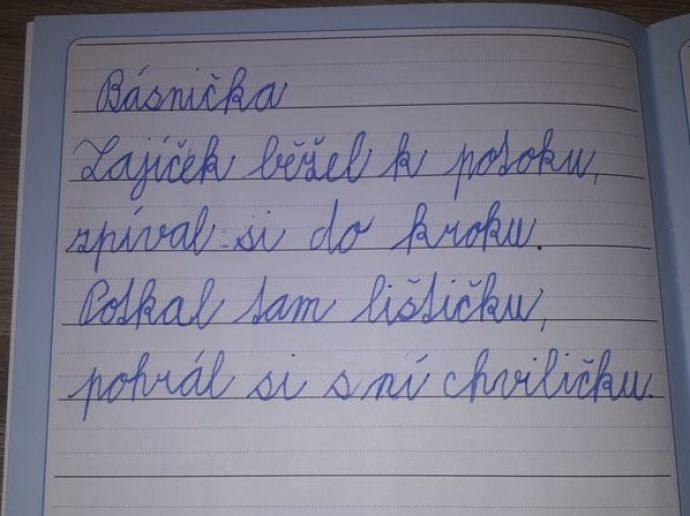 Básnička
Zajíček běžel k potoku,
zpíval si do kroku.
Potkal tam lištičku,
pohrál si s ní chviličku.